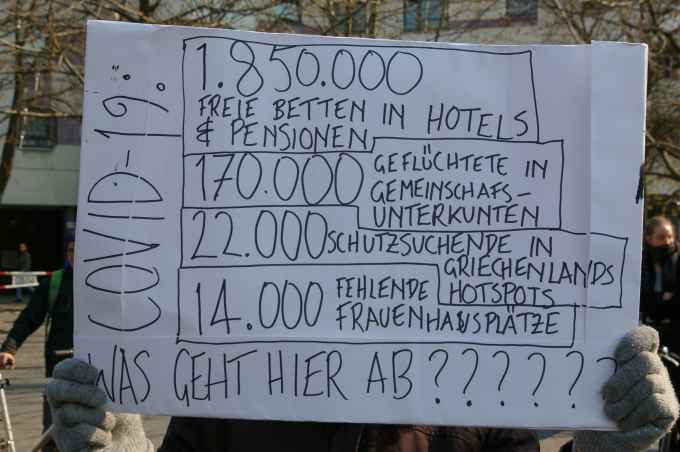 COVID-19:
1.850.000
FREIE BETTEN IN HOTELS
& PENSIONEN
170.000 GEFLÜCHTETE IN
GEMEINSCHAFS-
UNTERKUNTEN
22.000 SCHUTZSUCHENDE IN
GRIECHENLANDS
HOTSPOTS
14.000 FEHLENDE
FRAUENHAUSPLÄTZE
WAS GEHT HIER AB ??????